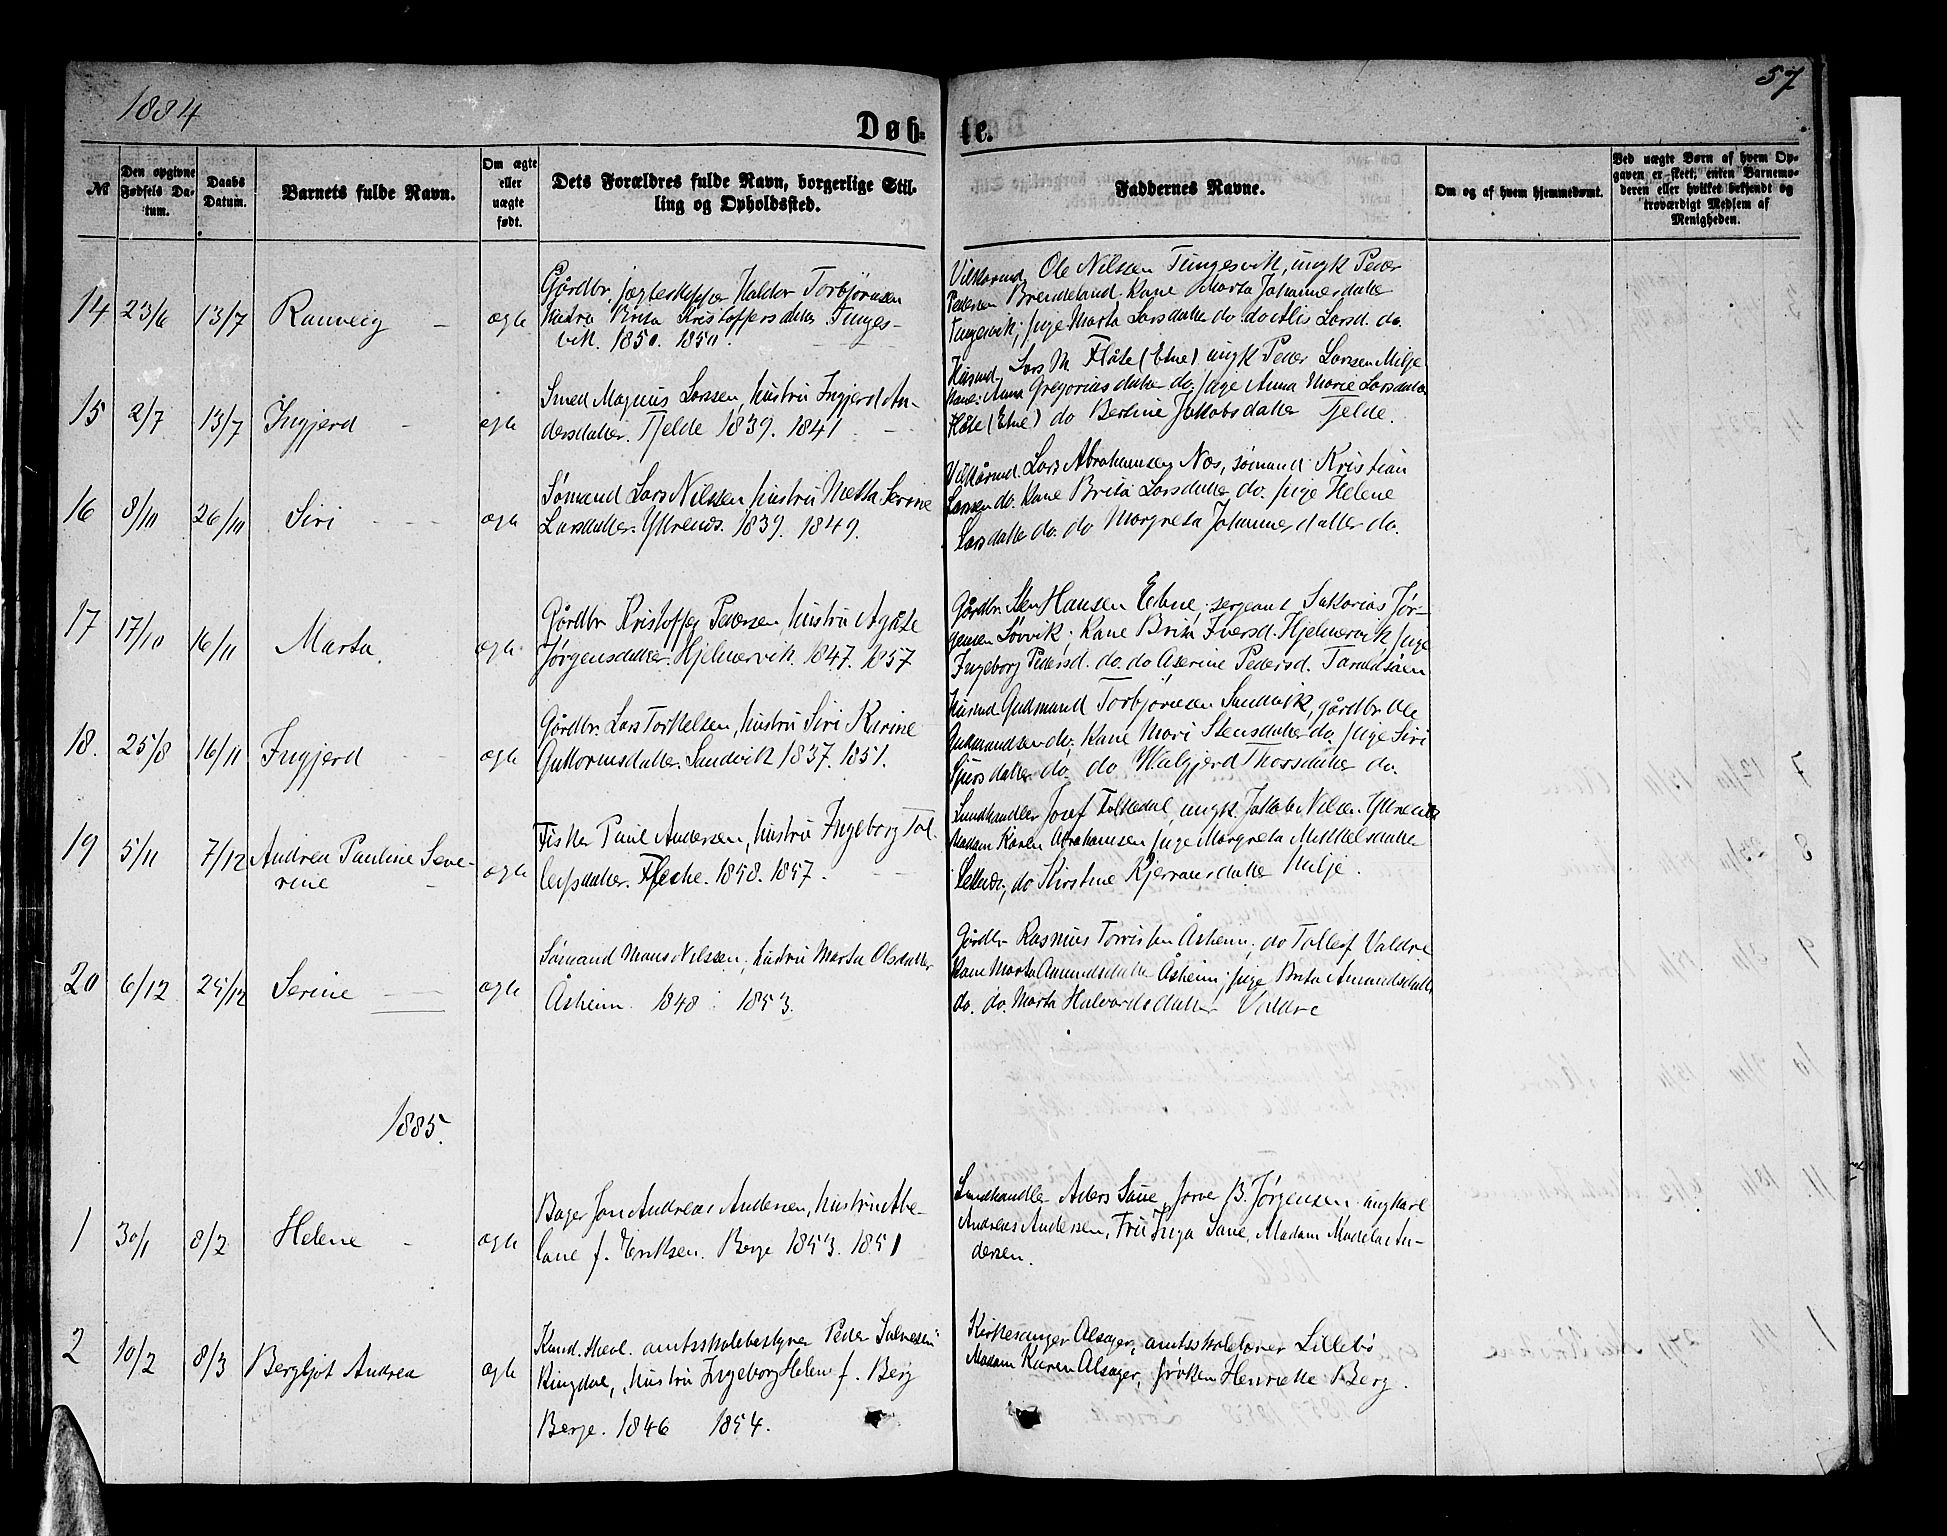 1884
57
Døb-
te.
№
Den opgivne Fødsels Datum.
Daabs Datum.
Barnets fulde Navn.
Om ægte eller uægte født.
Dets Forældres fulde Navn, borgerlige Stilling og Opholdssted.
Faddernes Navne.
Om og af hvem hjemmedøbt.
Ved uægte Børn af hvem Opgaven er skeet, enten Barnemoderen eller hvilket bekjendt og troværdigt Medlem af Menigheden.
14 23/6 13/7 Ranveig ægte
Gårdbr. jægteskipper Haldor Torbjørnsen
hustru Brita Kristoffersdatter Tunges-
vik. 1850. 1850.
Vilkårmd. Ole Nilssen Tungesvik, ungk Peder
Pedersen Brendeland. Kone Marta Johannesdatter
Tungesvik; pige Marta Larsdatter do. do Alis Larsd. do.
15 2/7 13/7 Ingjerd ægte
Smed Magnus Larssen, hustru Ingjerd An-
dersdatter. Tjelde 1839. 1841.
Husmd. Lars M. Flåte (Etne) ungk Peder Larssen Milje
Kone: Anna Gregoriusdatter do. pige Anna Marie Larsdatter
Flåte (Etne) do Berline Jakobsdatter Tjelde.
16 8/10 26/10 Siri ægte
Sømand Lars Nilssen, hustru Metta Serine
Larsdatter. Ytrenæs. 1839. 1849.
Vilkårmd. Lars Abrahamsen Næs, sømand Kristian
Larssen do. Kone Brita Larsdatter do. pige Helene
Larsdatter do. do Margreta Johannesdatter do.
17 17/10 16/11 Marta. ægte
Gårdbr Kristoffer Pedersen, hustru Agate
Jørgensdatter. Hjelmervik. 1847. 1857
Gårdbr. Sten Hansen Etne, sergeant Sakarias Jør-
gensen Søvvik; Kone Brita Iversd. Hjelmervik pige
Ingeborg Pedersd. do. do Aserine Pedersd.
18. 25/8 16/11 Ingjerd ægte
Gårdbr. Lars Torkelsen, hustru Siri Karine
Guttormsdatter. Sandvik 1837. 1851.
Husmd Gudmund Torbjørnsen Sandvik, gårdbr. Ole
Gudmundsen do; Kone Mari Stensdatter do. pige Siri
Sjursdatter do. do Walgjerd Thorsdatter do.
19 5/11 7/12 Andrea Pauline Seve-
rine ægte
Fisker Paul Andersen, hustru Ingeborg Tol-
leifsdatter. 1858. 1857.
Landhandler Josef Folkedal, ungk. Jakob Nilsen Ytrenæs
Madam Karen Abrahamsen pige Margreta Mikkelsdatter
do Kirstine Milje.
20 6/12 25/12 Serine ægte
Sømand Mons Nilssen, hustru Marta Olsdatter
Åsheim. 1848 1853.
Gårdbr Rasmus Torrissen Åsheim, do Tollef Valdre
Kone Marta Amundsdatter Åsheim; pige Brita Amundsdatter
do. do. Marta Halvardsdatter Valdre
1885.
1 30/1 8/2 Helene ægte
Bager Jon Andreas Andersen, hustru Abe-
lone f. Eriksen. Berge 1853. 1851
Landhandler Anders Saue, farver B. Jørgensen ungkarl
Andreas Andersen, Fru Inga Saue, Madam Madela An-
dersen.
2 10/2 8/3 Bergljot Andrea ægte
Kand. theol. amtsskolebestyrer Peder Salvesen
Ringdal, hustru Ingeborg Helene f. Berg
Berge. 1846 1854.
Kirkesanger Alsager, amtsskolelærer Lillebø
Madam Karen Alsager, frøken Henriette Berg.